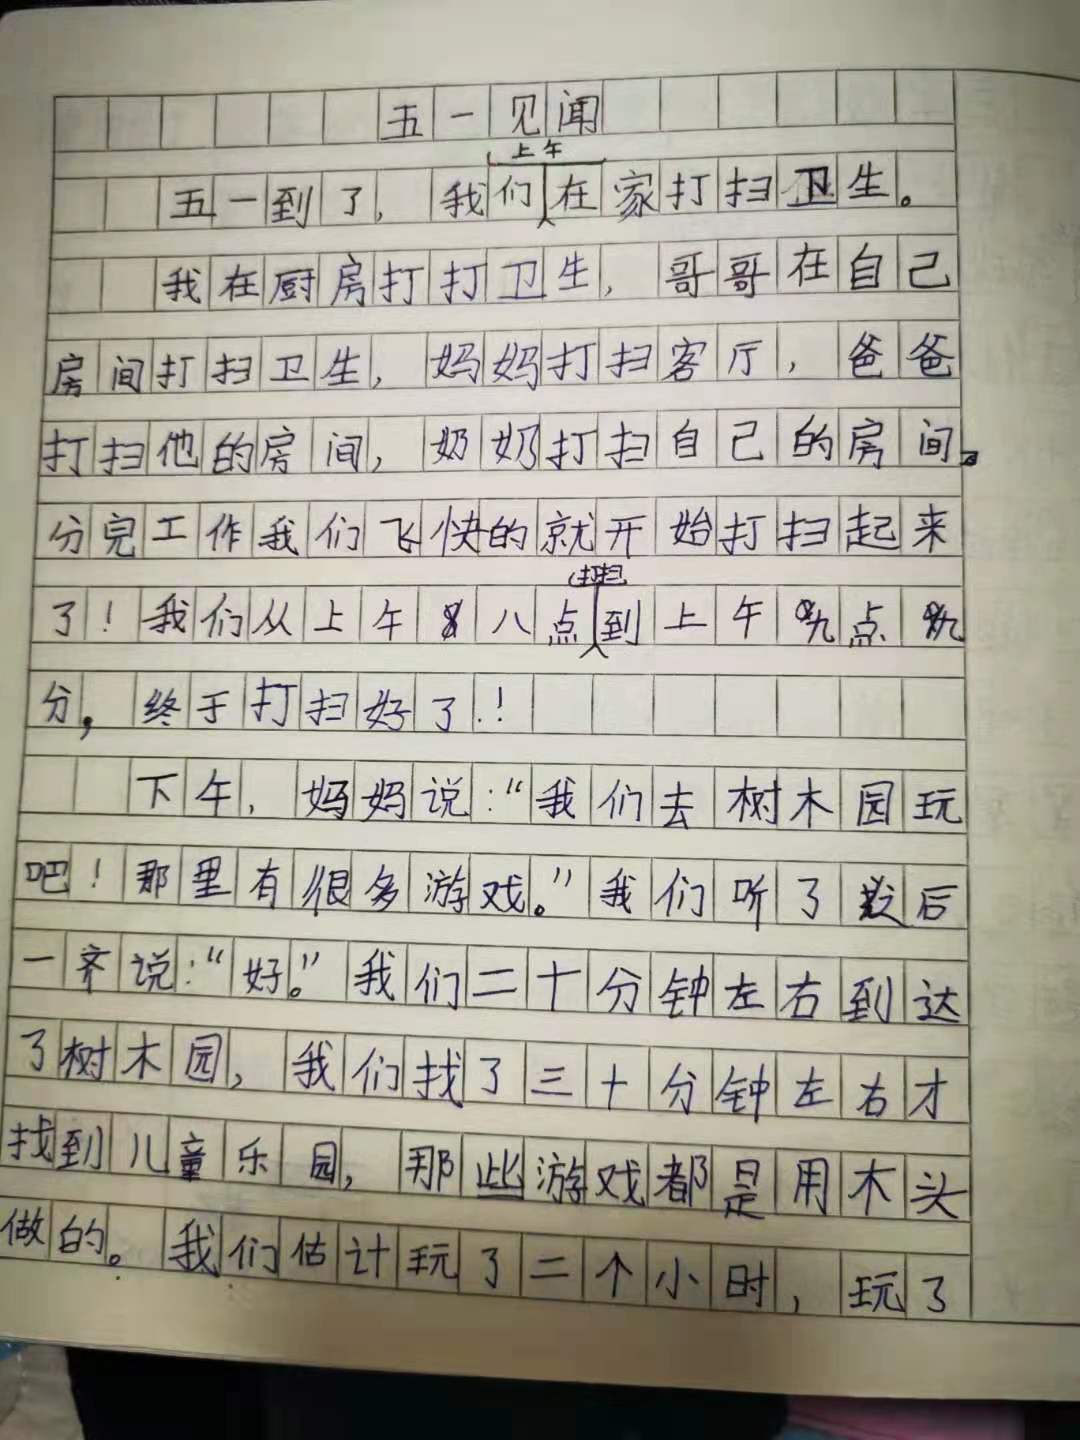 五一见闻
上午
五一到了，我们在家打扫卫生。
我在厨房打打卫生，哥哥在自己
房间打扫卫生，妈妈打扫客厅，爸爸
打扫他的房间，奶奶打扫自己的房间。
分完工作我们飞快的就开始打扫起来
打扫
了！我们从上午八点到上午九点九
分，终于打扫好了！
下午，妈妈说：“我们去树木园玩
吧！那里有很多游戏。”我们听了后
一齐说：“好。”我们二十分钟左右到达
了树木园，我们找了三十分钟左右才
找到儿童乐园，那些游戏都是用木头
做的。我们估计玩了二个小时，玩了